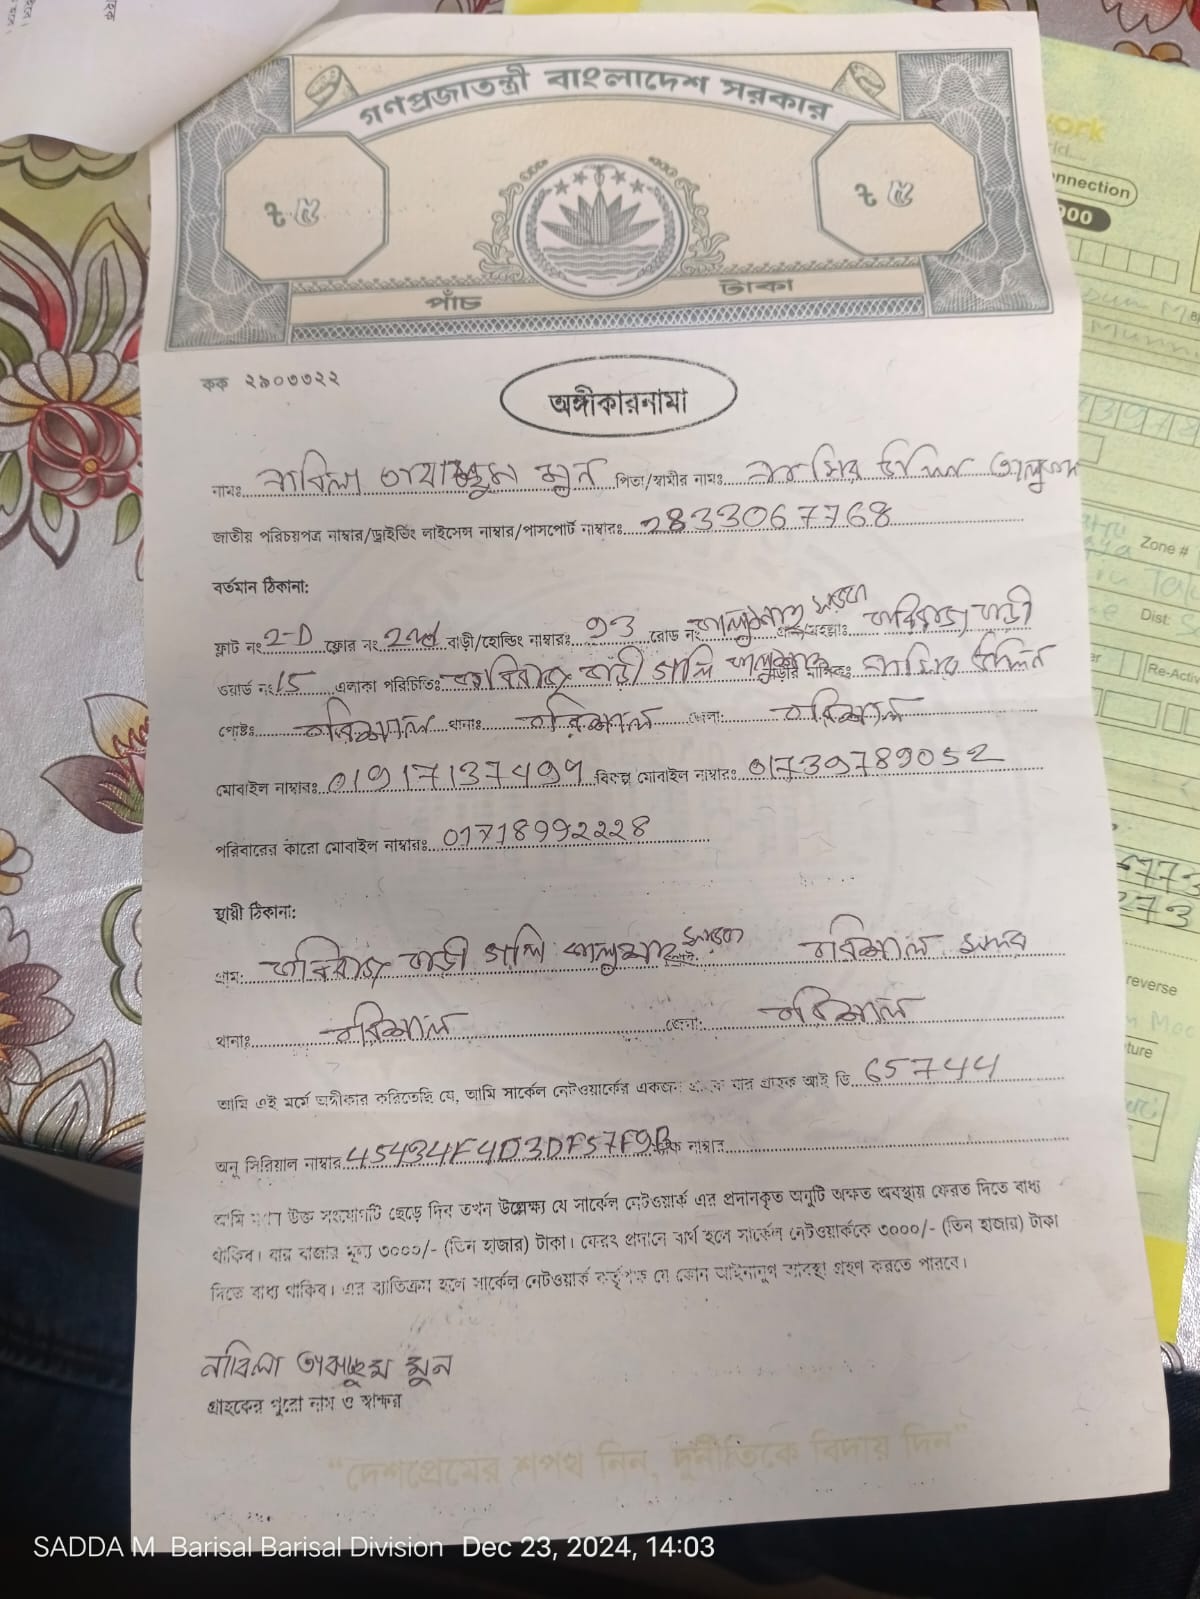 গণপ্রজাতন্ত্রী বাংলাদেশ সরকার
৳ ৫
৳ ৫
পাঁচ টাকা
কক ২৯০৩৩২২
অঙ্গীকারনামা
নামঃ নাবিলা তাবাচ্ছুম মুন পিতা/স্বামীর নামঃ নাসির উদ্দিন তালুকদার
জাতীয় পরিচয়পত্র নাম্বার/ড্রাইভিং লাইসেন্স নাম্বার/পাসপোর্ট নাম্বারঃ 2833067768
বর্তমান ঠিকানা:
ফ্লাট নং 2-D ফ্লোর নং 2nd বাড়ী/হোল্ডিং নাম্বারঃ 93 রোড নং কালুশাহ সড়ক কবিরাজ বাড়ী
ওয়ার্ড নং 15 এলাকা পরিচিতিঃ কবিরাজ বাড়ী গলি কালুশাহ বাড়ীর মালিকঃ নাসির উদ্দিন
পোষ্টঃ বরিশাল থানাঃ বরিশাল জেলা: বরিশাল
মোবাইল নাম্বারঃ 01917137499 বিকল্প মোবাইল নাম্বারঃ 01739789052
পরিবারের কারো মোবাইল নাম্বারঃ 01718992228
স্থায়ী ঠিকানা:
গ্রাম: কবিরাজ বাড়ী গলি কালুশাহ সড়ক বরিশাল সদর
থানাঃ বরিশাল জেলা: বরিশাল
আমি এই মর্মে অঙ্গীকার করিতেছি যে, আমি সার্কেল নেটওয়ার্কের একজন যার গ্রাহক আই ডি 65744
অনু সিরিয়াল নাম্বার 45434F4D3DF57F9B নাম্বার
আমি উক্ত সংযোগটি ছেড়ে দিব তখন উল্লেক্ষ্য যে সার্কেল নেটওয়ার্ক এর প্রদানকৃত অনুটি অক্ষত অবস্থায় ফেরত দিতে বাধ্য
থাকিব। যার বাজার মূল্য ৩০০০/- (তিন হাজার) টাকা। ফেরৎ প্রদানে ব্যর্থ হলে সার্কেল নেটওয়ার্ককে ৩০০০/- (তিন হাজার) টাকা
দিতে বাধ্য থাকিব। এর ব্যতিক্রম হলে সার্কেল নেটওয়ার্ক কর্তৃপক্ষ যে কোন আইনানুগ ব্যবস্থা গ্রহণ করতে পারবে।
নাবিলা তাবাচ্ছুম মুন
গ্রাহকের পুরো নাম ও স্বাক্ষর
“দেশপ্রেমের শপথ নিন, দুর্নীতিকে বিদায় দিন”
Zone #
Dist:
Re-Activ
reverse
SADDA M Barisal Barisal Division Dec 23, 2024, 14:03